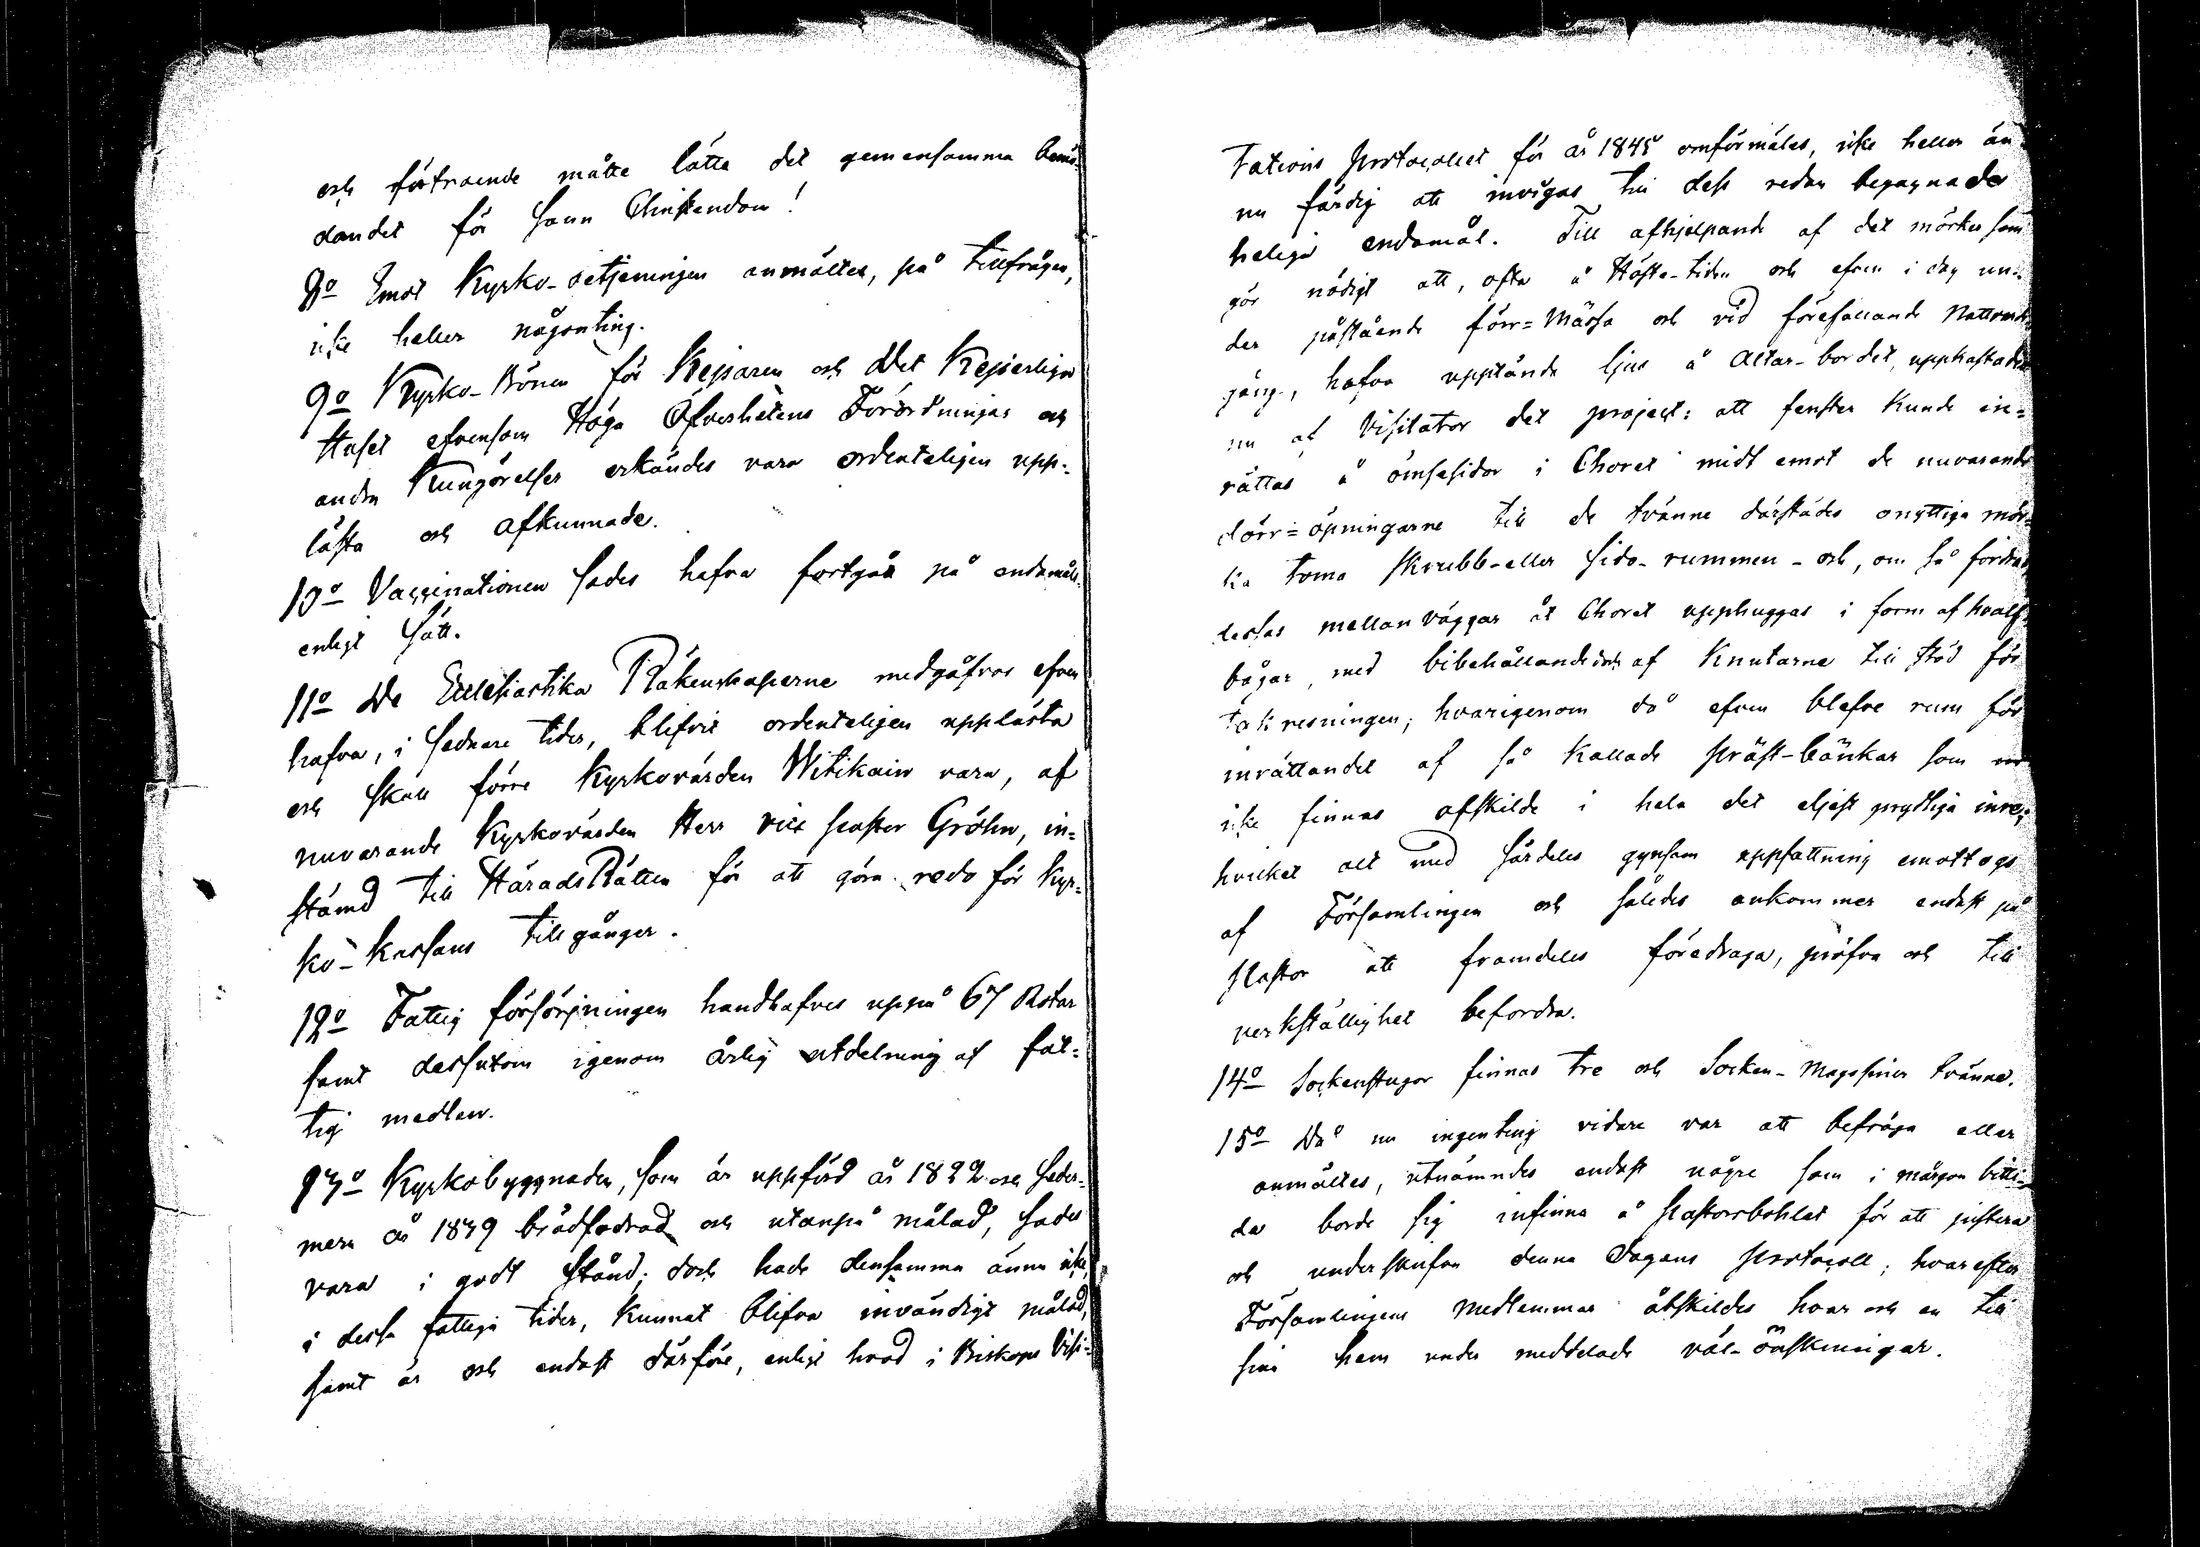 och förtroende måtte lätta det gemensamma bemö=
dandet för sann Christendom!
8o Emot Kyrko-betjeningen anmältes, på tillfrågan,
icke heller någonting.
9o Kyrko-Bönen för Kejsaren och Det Kejserliga
Huset äfvensom Höga Öfverhetens Förordningar och
andra Kungörelser erkändes vara ordenteligen upp=
lästa och afkunnade.
10o Vaccinationen sades hafva fortgå på endamåls=
enligt sätt.
11o De Ecclesiastika Räkenskaperne medgåfvos äfven
hafva, i sednare tider, blifvit ordenteligen upplästa
och skall förre Kyrkovärden Witikain vara, af
nuvarande Kyrkovärden Herr vice Pastor Gröhn, in=
stämd till HäradsRätten för att göra redo för Kyr=
ko-Kassans tillgångar.
12o Fattig försörjningen handhafves uppå 67 Rotar
samt dessutom igenom årlig utdelning af fat=
tig medlen.
13o Kyrkobyggnaden, som är uppförd år 1822 och seder=
mera år 1839 brädfodrad och utanpå målad, sades
vara i godt stånd; dock hade densamma ännu icke,
i dessa fattiga tider, kunnat blifva invändigt målad,
samt är och endast därföre, enligt hvad i Biskops Visi=
tations Protocollet för år 1845 omförmäles, icke heller än=
nu färdig att invigas till dess redan begagnade
heliga endamål. Till afhjelpande af det mörker som
gör nödigt att, ofta å Höste-tiden och äfven i dag un=
der påstående förr=Mässa och vid förefallande Nattvards=
gång, hafva upptände ljus å Altar-bordet, uppkastades
nu af Visitator det project: att fenster kunde in=
rättas å ömsesidor i Choret midt emot de nuvarande
dörr=öpningarne till de tvänne därstädes onyttiga mör=
ka toma skrubb-eller sido-rummen - och, om så fordras,
dessas mellanväggar åt Choret upphuggas i form af hvalf=
bågar, med bibehållande af Knutarne till stöd för
takresningen; hvarigenom då äfven blefve rum för
inrättandet af så Kallade Präst-bänkar som
icke finnas afskilde i hela det eljest prydliga inre;
hvilket alt med särdeles gynsam uppfattning emottogs
af Församlingen och således ankommer endast på
Pastor att framdeles föredraga, pröfva och till
verkställighet befordra.
14o Sockenstugor finnas tre och Socken-Magasiner tvänne.
15o Då nu ingenting vidare var att befråga eller
anmältes, utnämndes endast någre som i morgon bitti=
da borde sig infinna å Pastorsbohlet för att justera
och underskrifva denna Dagens Protocoll; hvarefter
Församlingens Medlemmar åtskildes hvar och en till
sina hem under meddelade väl-önskningar.